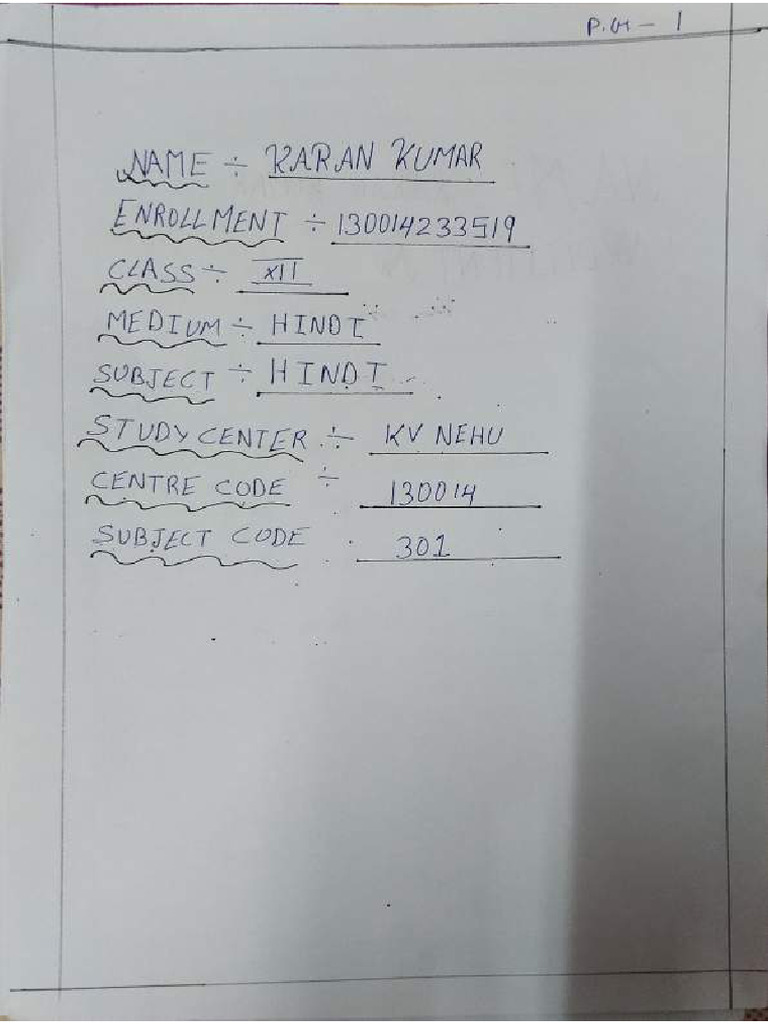 P.G - 1
NAME ÷ KARAN KUMAR
ENROLLMENT ÷ 130014233519
CLASS ÷ XII
MEDIUM ÷ HINDI
SUBJECT ÷ HINDI
STUDY CENTER ÷ KV NEHU
CENTRE CODE ÷ 130014
SUBJECT CODE . 301